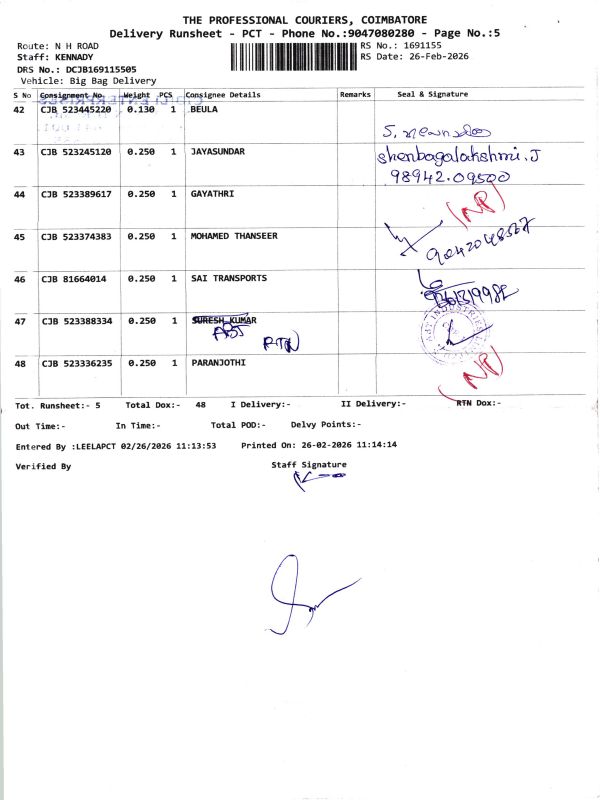 THE PROFESSIONAL COURIERS, COIMBATORE
Delivery Runsheet - PCT - Phone No.:9047080280 - Page No.:5
Route: N H ROAD
RS No.: 1691155
Staff: KENNADY
RS Date: 26-Feb-2026
DRS No.: DCJB169115505
Vehicle: Big Bag Delivery
S No Consignment No Weight PCS Consignee Details Remarks Seal & Signature
42 CJB 523445220 0.130 1 BEULA
43 CJB 523245120 0.250 1 JAYASUNDAR shenbagalakshmi.J
98942.09500
44 CJB 523389617 0.250 1 GAYATHRI NP
45 CJB 523374383 0.250 1 MOHAMED THANSEER 9842048567
46 CJB 81664014 0.250 1 SAI TRANSPORTS
47 CJB 523388334 0.250 1 SURESH KUMAR
RTN
48 CJB 523336235 0.250 1 PARANJOTHI NP
Tot. Runsheet:- 5 Total Dox:- 48 I Delivery:- II Delivery:- RTN Dox:-
Out Time:- In Time:- Total POD:- Delvy Points:-
Entered By :LEELAPCT 02/26/2026 11:13:53 Printed On: 26-02-2026 11:14:14
Verified By Staff Signature